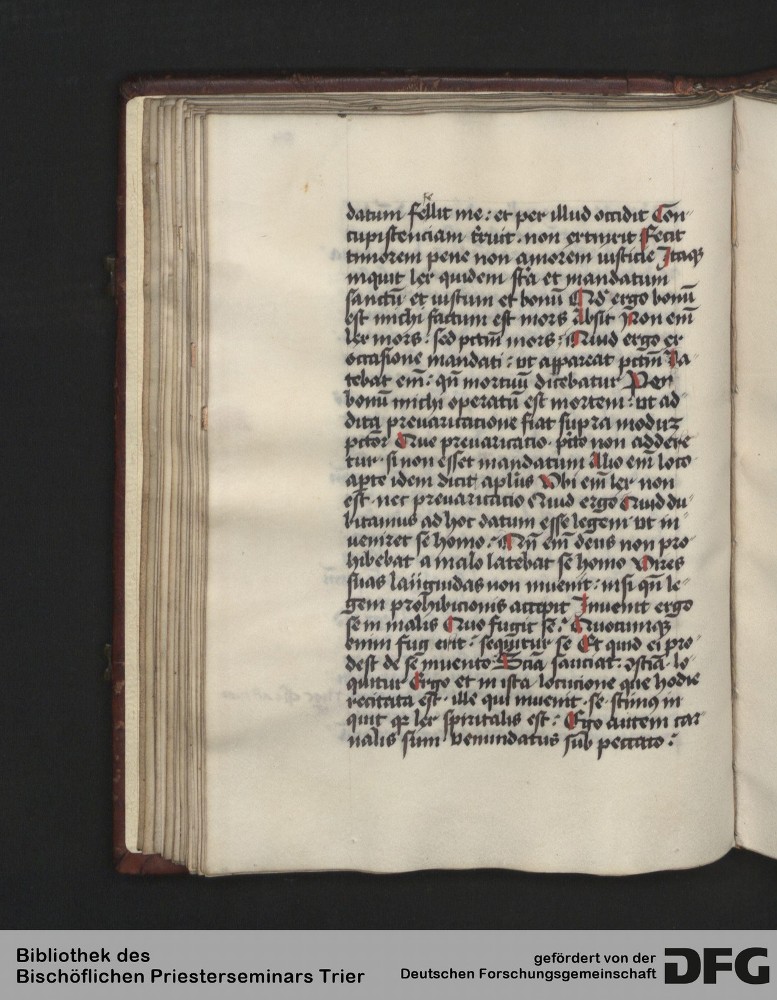 datum fellit me : et per illud occidit Con
cupiscenciam truit . non extinxit Fecit
timorem pene non amorem iusticie Itaqȝ
inquit lex quidem sc̄a et mandatum
sanctū et iustum et bonū Qd̛ ergo bonū
est michi factum est mors Absit Non em̄
lex mors : sed pctm̄ mors : Quid ergo ex
occasione mandati : vt appareat pctm̄ La
tebat em̄ : qn̄ mortuū dicebatur Per
bonū michi operatū est mortem : vt ad
dita preuaricacione fiat supra modūz
pctōr Que preuaricacio . pctō non addere
tur . si non esset mandatum Alio em̄ loco
apte idem dicit apl̄us Vbi em̄ lex non
est . nec preuaricacio Quid ergo Quid du
bitamus ad hoc datum esse legem vt in
ueniret se homo : Qn̄ em̄ deus non pro
hibebat a malo latebat se homo Vires
suas languidas non inuenit : nisi qn̄ le
gem prohibicionis accepit Inuenit ergo
se in malis Quo fugit se : Quocumqȝ
enim fug erit : sequitur se Et quid ei pro
dest de se inuento
quitur Ergo et in ista locucione que hodie
recitata est . ille qui inuenit . se . in
quit qr̄ lex spiritalis est : Ego autem car
nalis sum . venundatus sub peccato :
Bibliothek des
Bischöflichen Priesterseminars Trier
gefördert von der
Deutschen Forschungsgemeinschaft
DFG